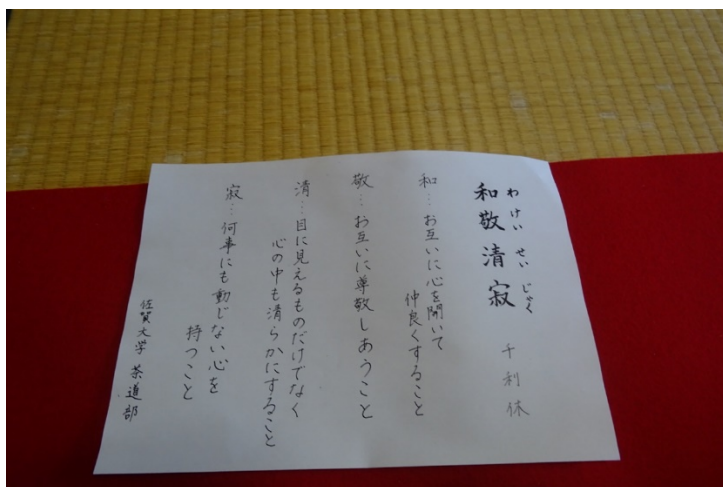 わけい せい じゃく
和敬清寂
千利休
和…お互いに心を開いて
仲良くすること
敬…お互いに尊敬しあうこと
清…目に見えるものだけでなく
心の中も清らかにすること
寂…何事にも動じない心を
持つこと
佐賀大学 茶道部